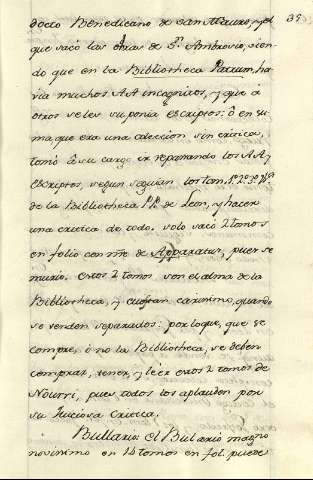 39
docto Benedicano de San Mauro, y el
que sacó las obras de Sn. Ambrosio, vien-
do que en la Bibliotheca Patrum, ha-
via muchos AA incognitos, y que à
otros se les suponia escriptos: ò en su-
ma que era una coleccion sin critica,
tomó à su cargo ir reparando los AA y
escriptos, segun seguian los tom. 1º 2º 3º &ª
de la Bibliotheca PP. de Leon, y hacer
una critica de todo. solo sacó 2 tomos
en folio con nre de Apparatus, pues se
murio. estos 2 tomos son el alma de la
Bibliotheca, y cuestan carisimo, quando
se venden separados: por lo que, que se
compre, ò no la Bibliotheca, se deben
comprar, tener, y leer estos 2 tomos de
Nourri, pues todos los aplauden por
su juiciosa Critica.
Bullario: el Bulario magno
novisimo en 14 tomos en fol. puede